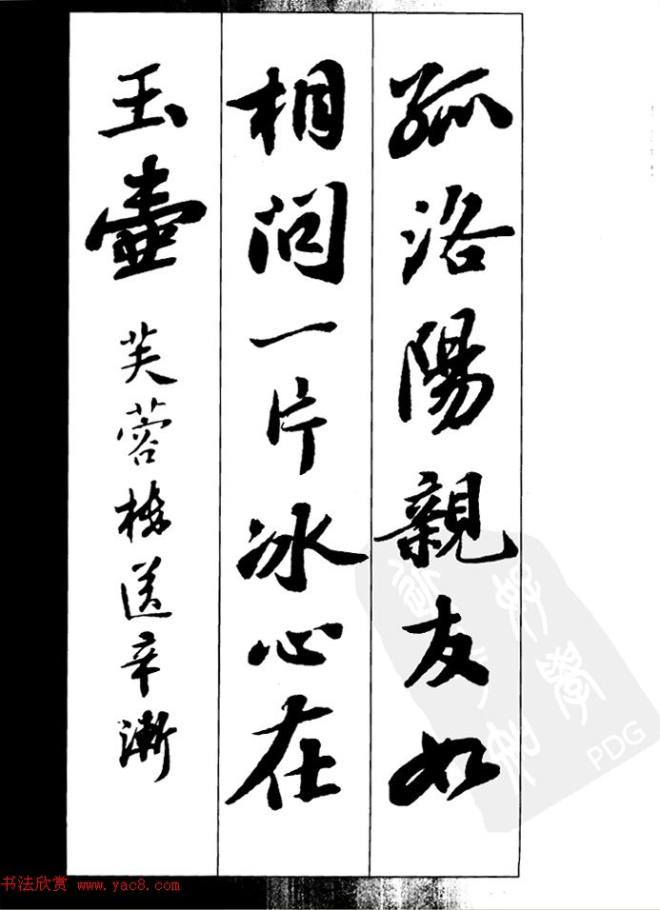 孤洛陽親友如
相問一片冰心在
玉壺
芙蓉樓送辛漸
PDG
书法欣赏 www.yac8.com